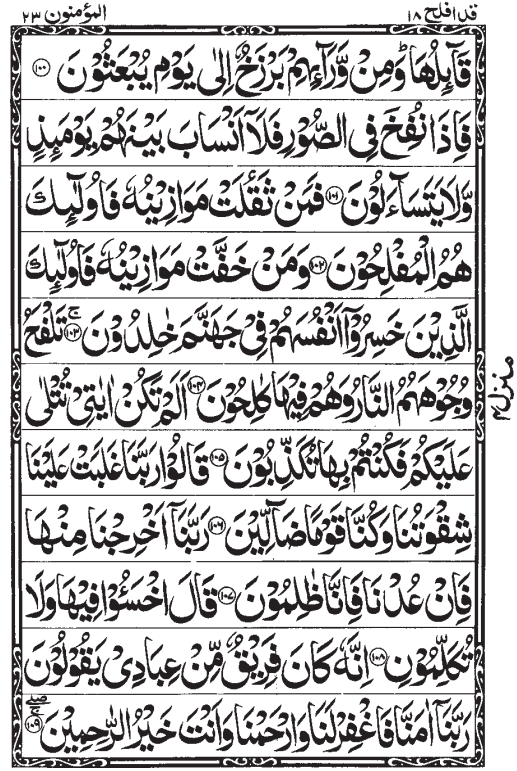 قد افلح ١٨
المؤمنون ٢٣
قَآئِلُهَا ؕ وَمِنْ وَّرَآئِهِمْ بَرْزَخٌ اِلٰى يَوْمِ يُبْعَثُوْنَ ١٠٠
فَاِذَا نُفِخَ فِى الصُّوْرِ فَلَاۤ اَنْسَابَ بَيْنَهُمْ يَوْمَئِذٍ
وَّلَا يَتَسَآءَلُوْنَ ١٠١ فَمَنْ ثَقُلَتْ مَوَازِيْنُهٗ فَاُولٰٓئِكَ
هُمُ الْمُفْلِحُوْنَ ١٠٢ وَمَنْ خَفَّتْ مَوَازِيْنُهٗ فَاُولٰٓئِكَ
الَّذِيْنَ خَسِرُوْۤا اَنْفُسَهُمْ فِىْ جَهَنَّمَ خٰلِدُوْنَ ۚ ١٠٣ تَلْفَحُ
وُجُوْهَهُمُ النَّارُ وَهُمْ فِيْهَا كٰلِحُوْنَ ١٠٤ اَلَمْ تَكُنْ اٰيٰتِىْ تُتْلٰى
عَلَيْكُمْ فَكُنْتُمْ بِهَا تُكَذِّبُوْنَ ١٠٥ قَالُوْا رَبَّنَا غَلَبَتْ عَلَيْنَا
شِقْوَتُنَا وَكُنَّا قَوْمًا ضَآلِّيْنَ ١٠٦ رَبَّنَاۤ اَخْرِجْنَا مِنْهَا
فَاِنْ عُدْنَا فَاِنَّا ظٰلِمُوْنَ ١٠٧ قَالَ اخْسَئُوْا فِيْهَا وَلَا
تُكَلِّمُوْنِ ١٠٨ اِنَّهٗ كَانَ فَرِيْقٌ مِّنْ عِبَادِىْ يَقُوْلُوْنَ
رَبَّنَاۤ اٰمَنَّا فَاغْفِرْ لَنَا وَارْحَمْنَا وَاَنْتَ خَيْرُ الرّٰحِمِيْنَ ۖ ۚ ١٠٩
منزل ٤